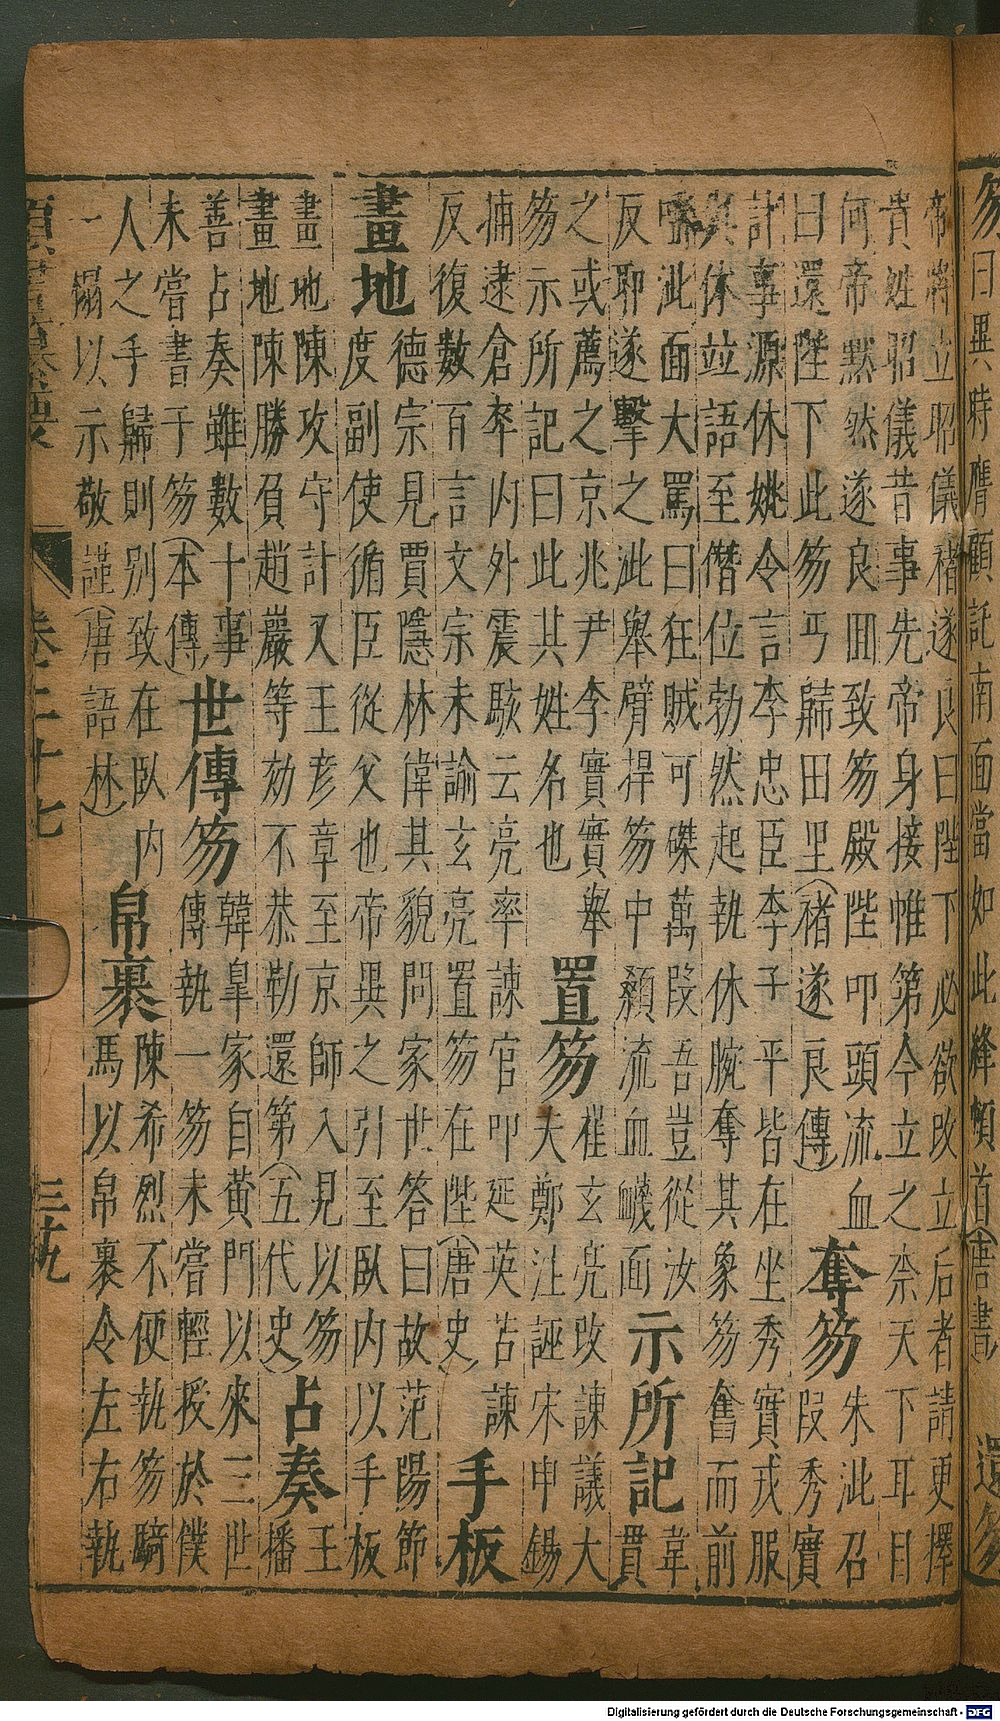 笏曰異時膺顧託南面當如此絳頓首(唐書) 還笏
帝將立昭儀褚遂良曰陛下必欲改立后者請更擇
貴姓昭儀昔事先帝身接帷第今立之奈天下耳目
何帝默然遂良回致笏殿陛叩頭流血
曰還陛下此笏丐歸田里(褚遂良傳)
奪笏
朱泚召
段秀實
計事源休姚令言李忠臣李子平皆在坐秀實戎服
與休並語至僭位勃然起執休腕奪其象笏奮而前
唾泚面大罵曰狂賊可磔萬段吾豈從汝
反耶遂擊之泚舉臂捍笏中顙流血衊面
示所記
韋
貫
之或薦之京兆尹李實實舉
笏示所記曰此其姓名也
置笏
崔玄亮改諫議大
夫鄭注誣宋申錫
捕逮倉卒內外震駭云亮率諫官叩延英苦諫
反復數百言文宗未諭玄亮置笏在陛(唐史)
手板
畫地
德宗見賈隱林偉其貌問家世答曰故范陽節
度副使循臣從父也帝異之引至臥内以手板
畫地陳攻守計又王彥章至京師入見以笏
畫地陳勝負趙巖等劾不恭勒還第(五代史)
占奏
王
播
善占奏雖數十事
未嘗書于笏(本傳)
世傳笏
韓皐家自黃門以來三世
傳執一笏未嘗輕授於僕
人之手歸則別致在臥內
一榻以示敬謹(唐語林)
帛裹
陳希烈不便執笏騎
馬以帛裹令左右執
卷二十七
Digitalisierung gefördert durch die Deutsche Forschungsgemeinschaft - DFG